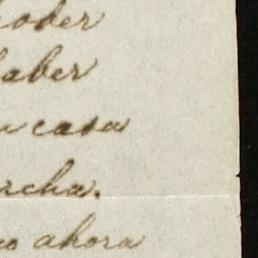 oder
aber
n casa
rcha.
no ahora